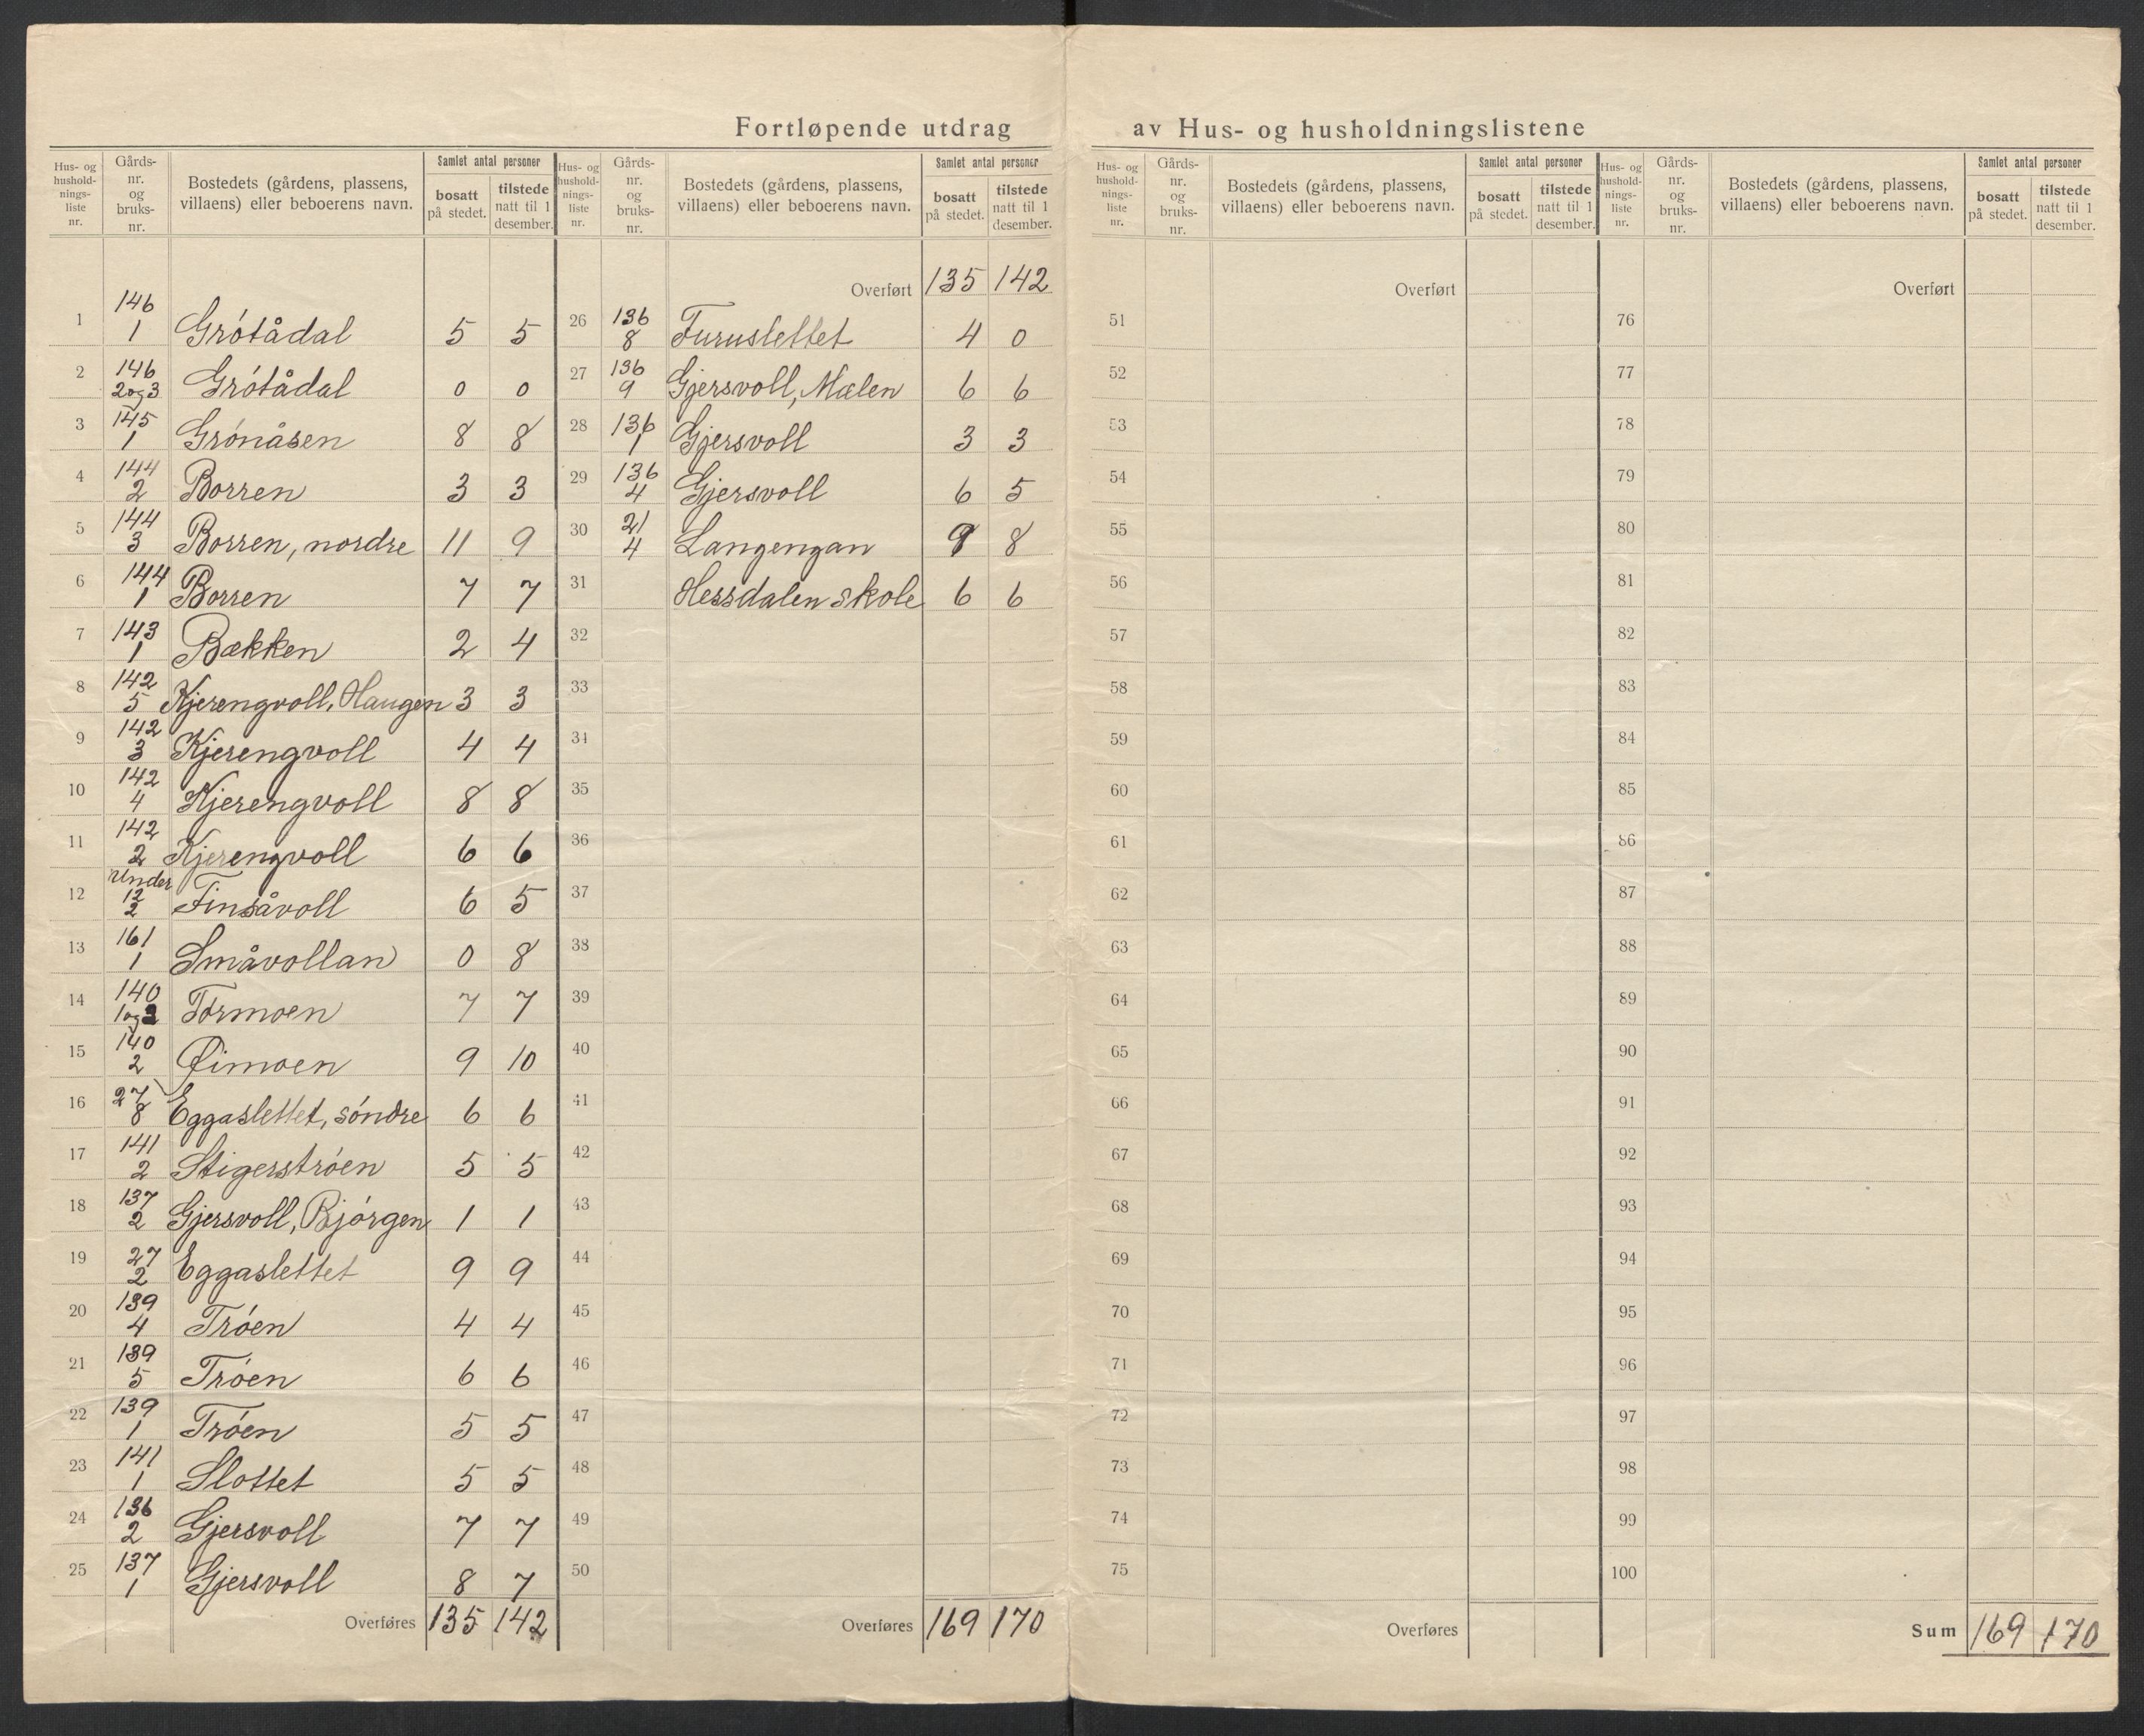 Fortløpende utdrag av Hus- og husholdningslistene
Hus- og hushold-nings-liste nr. | Gårds-nr. og bruks-nr. | Bostedets (gårdens, plassens, villaens) eller beboerens navn. | Samlet antal personer: bosatt på stedet. | tilstede natt til 1 desember.
1 | 146 1 | Grótådal | 5 | 5
2 | 146 2og3 | Grótådal | 0 | 0
3 | 145 1 | Grónåsen | 8 | 8
4 | 144 2 | Borren | 3 | 3
5 | 144 3 | Borren, nordre | 11 | 9
6 | 144 1 | Borren | 7 | 7
7 | 143 1 | Bækken | 2 | 4
8 | 142 5 | Kjerengvoll, Haugen | 3 | 3
9 | 142 3 | Kjerengvoll | 4 | 4
10 | 142 4 | Kjerengvoll | 8 | 8
11 | 142 2 | Kjerengvoll | 6 | 6
12 | Under 12 2 | Finsåvoll | 6 | 5
13 | 161 1 | Småvollan | 0 | 8
14 | 140 1og2 | Tormoen | 7 | 7
15 | 140 2 | Øimoen | 9 | 10
16 | 27 8 | Eggaslettet, sóndre | 6 | 6
17 | 141 2 | Stigerstróen | 5 | 5
18 | 137 2 | Gjersvoll, Bjórgen | 1 | 1
19 | 27 2 | Eggaslettet | 9 | 9
20 | 139 4 | Tróen | 4 | 4
21 | 139 5 | Tróen | 6 | 6
22 | 139 1 | Tróen | 5 | 5
23 | 141 1 | Slottet | 5 | 5
24 | 136 2 | Gjersvoll | 7 | 7
25 | 137 1 | Gjersvoll | 8 | 7
Overføres | 135 | 142
Hus- og hushold-nings-liste nr. | Gårds-nr. og bruks-nr. | Bostedets (gårdens, plassens, villaens) eller beboerens navn. | Samlet antal personer: bosatt på stedet. | tilstede natt til 1 desember.
Overført | 135 | 142
26 | 136 8 | Furuslettet | 4 | 0
27 | 136 9 | Gjersvoll, Mælen | 6 | 6
28 | 136 1 | Gjersvoll | 3 | 3
29 | 136 4 | Gjersvoll | 6 | 5
30 | 21 4 | Langengan | 9 | 8
31 | Hessdalen skole | 6 | 6
32
33
34
35
36
37
38
39
40
41
42
43
44
45
46
47
48
49
50
Overføres | 169 | 170
Hus- og hushold-nings-liste nr. | Gårds-nr. og bruks-nr. | Bostedets (gårdens, plassens, villaens) eller beboerens navn. | Samlet antal personer: bosatt på stedet. | tilstede natt til 1 desember.
Overført
51
52
53
54
55
56
57
58
59
60
61
62
63
64
65
66
67
68
69
70
71
72
73
74
75
Overføres
Hus- og hushold-nings-liste nr. | Gårds-nr. og bruks-nr. | Bostedets (gårdens, plassens, villaens) eller beboerens navn. | Samlet antal personer: bosatt på stedet. | tilstede natt til 1 desember.
Overført
76
77
78
79
80
81
82
83
84
85
86
87
88
89
90
91
92
93
94
95
96
97
98
99
100
Sum | 169 | 170